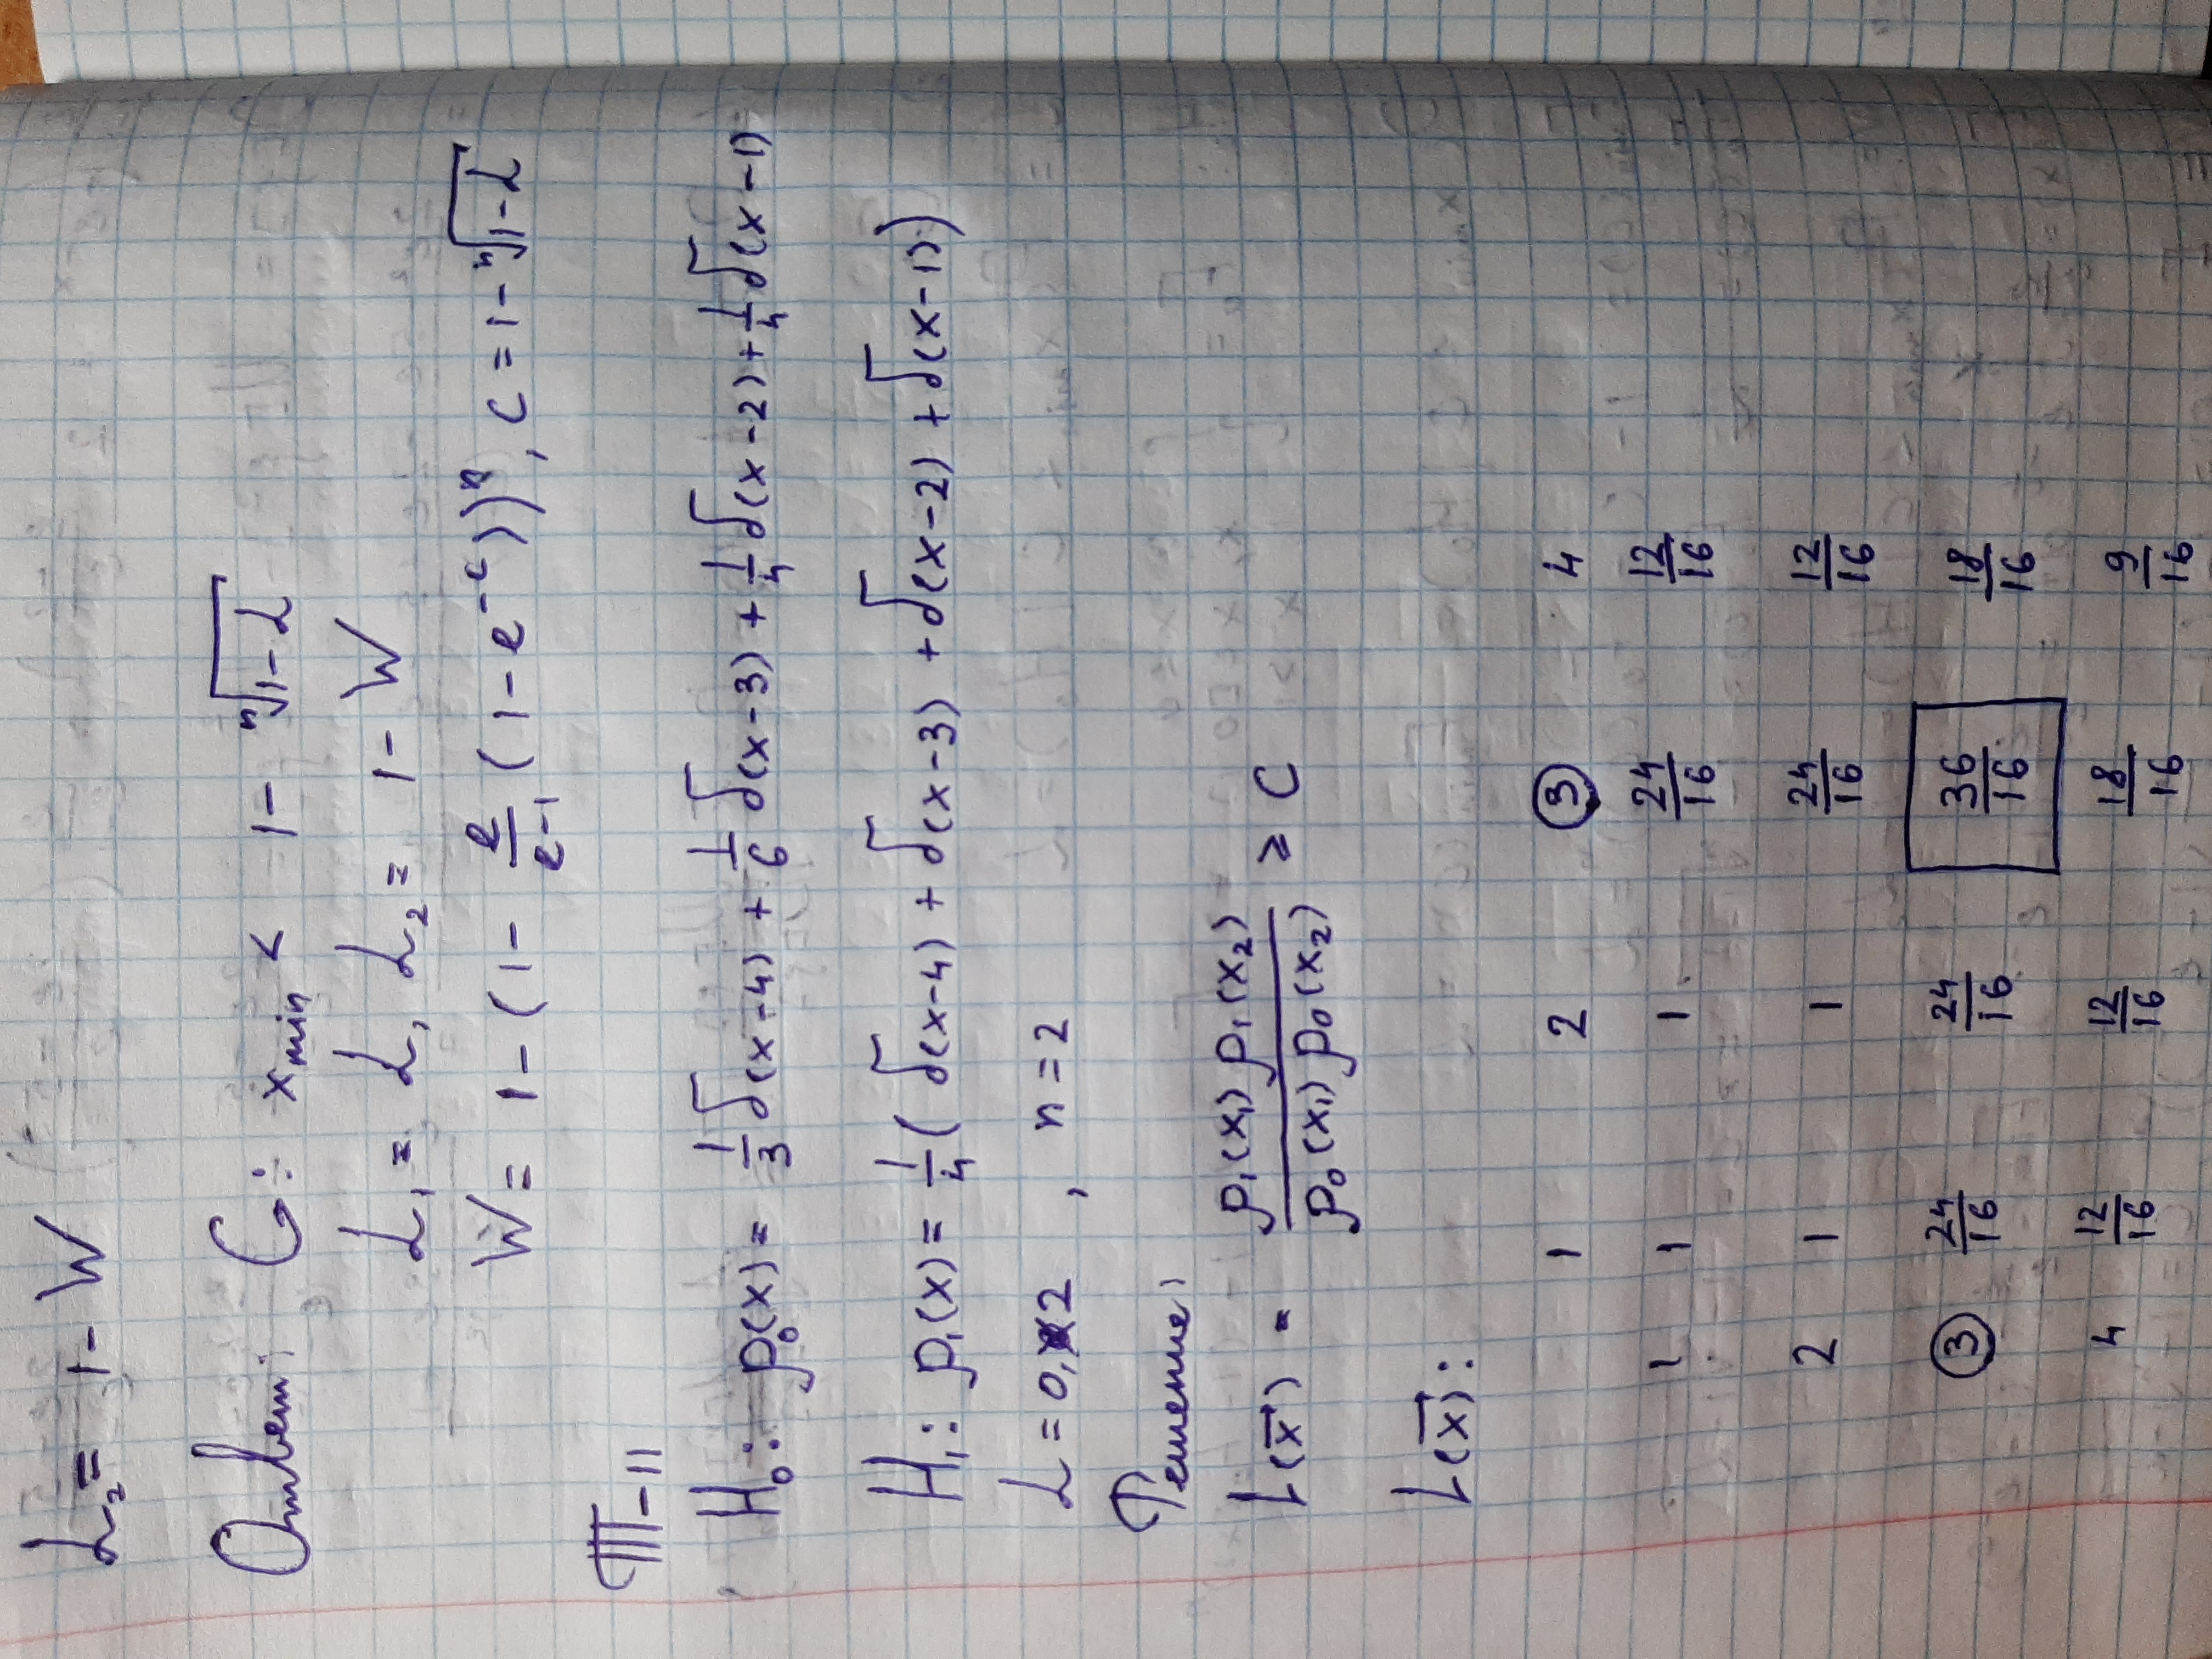 𝓛₂ = 1 - W
Ответ: G: x_min < 1 - ⁿ√(1-𝓛)
𝓛₁ = 𝓛, 𝓛₂ = 1 - W
W = 1 - (1 - e/(e-1) (1 - e^(-c)))ⁿ, c = 1 - ⁿ√(1-𝓛)
Т-11
H₀: p₀(x) = 1/3 δ(x-4) + 1/6 δ(x-3) + 1/4 δ(x-2) + 1/4 δ(x-1)
H₁: p₁(x) = 1/4 (δ(x-4) + δ(x-3) + δ(x-2) + δ(x-1))
𝓛 = 0,2 , n = 2
Решение:
L(x⃗) = p₁(x₁) p₁(x₂) / p₀(x₁) p₀(x₂) ≥ C
L(x⃗):
1 2 3 4
1 1 1 24/16 12/16
2 1 1 24/16 12/16
3 24/16 24/16 36/16 18/16
4 12/16 12/16 18/16 9/16